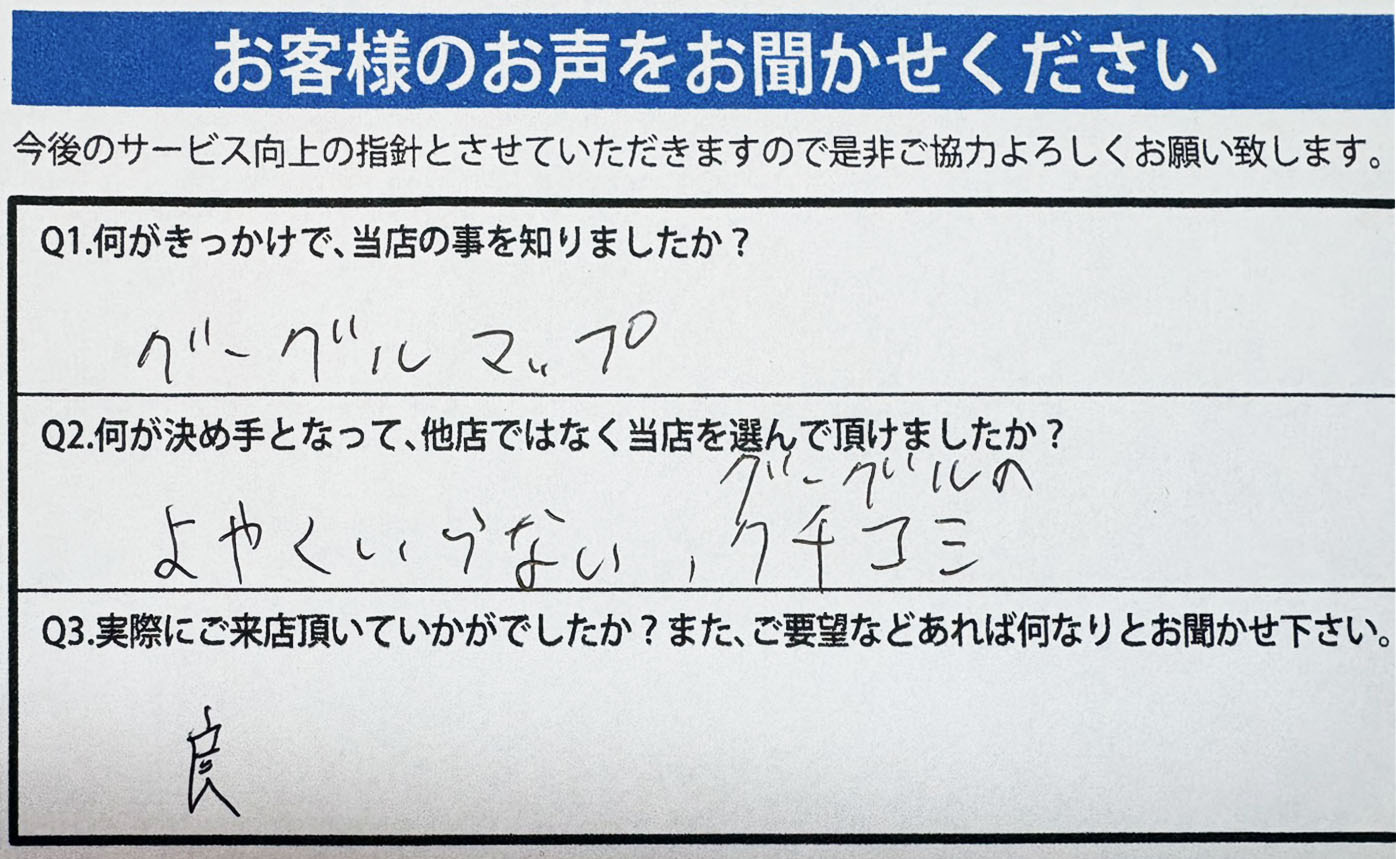 お客様のお声をお聞かせください
今後のサービス向上の指針とさせていただきますので是非ご協力よろしくお願い致します。
Q1.何がきっかけで、当店の事を知りましたか？
グーグルマップ
Q2.何が決め手となって、他店ではなく当店を選んで頂けましたか？
グーグルの
よやくいらない、クチコミ
Q3.実際にご来店頂いていかがでしたか？また、ご要望などあれば何なりとお聞かせ下さい。
良